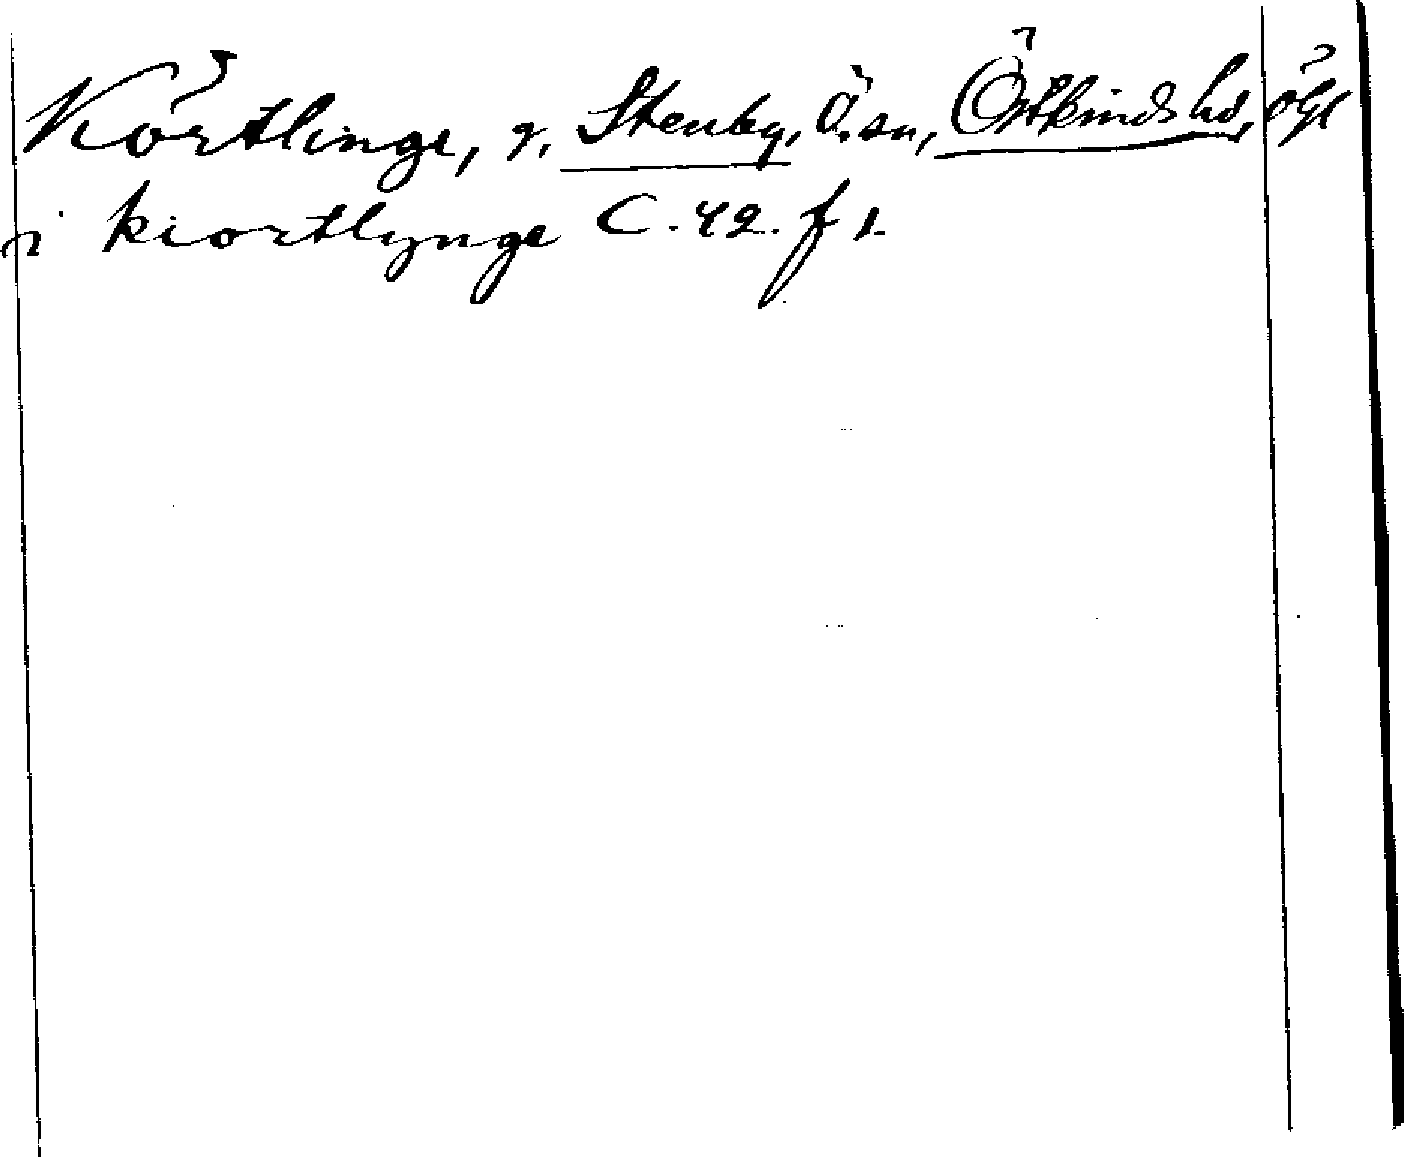 Körtlinge, g, Stenby, Ö. sn, Östkinds hd, Ögl
i kiortlynge C. 42. f 1